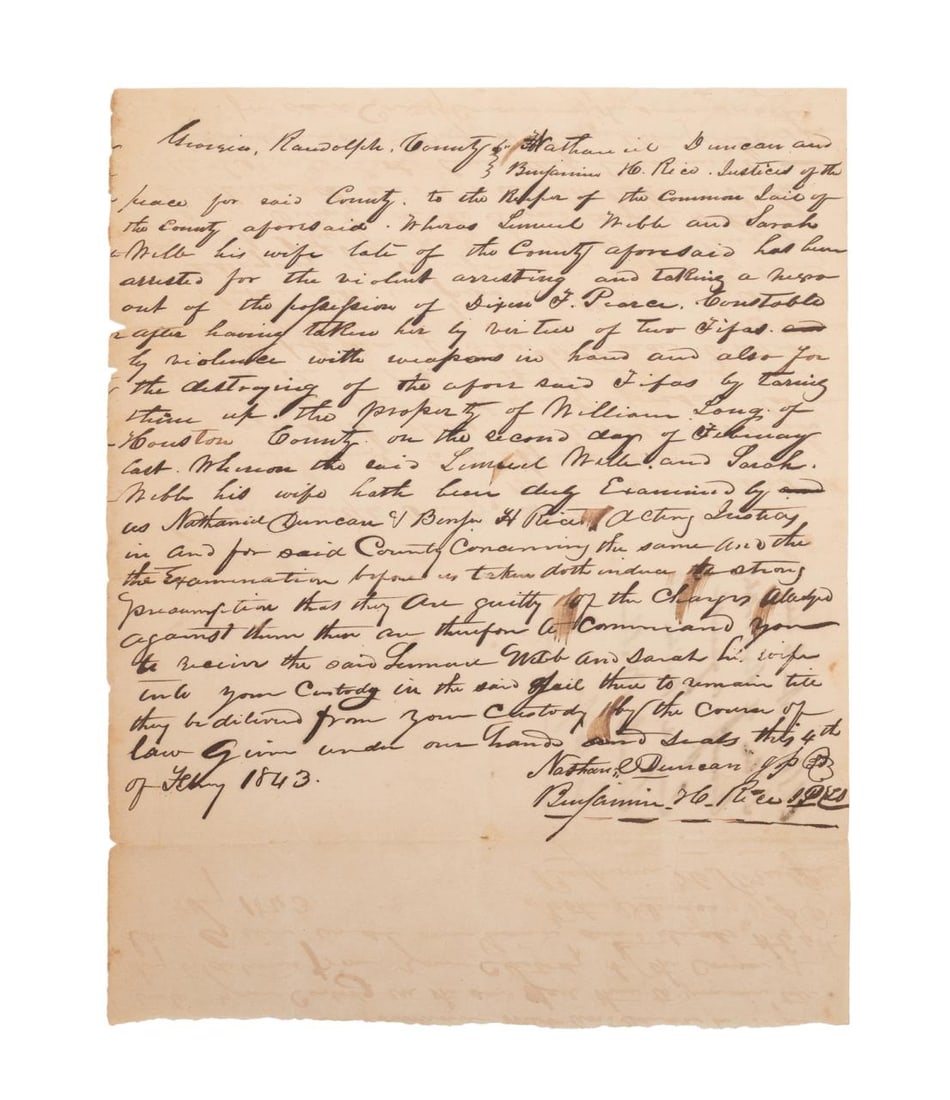 Georgia, Randolph, County } Nathaniel Duncan and
} Benjamin H. Rice. Justices of the
peace for said County. to the Keeper of the Common Jail of
the County aforesaid. Wheras Lemuel Webb and Sarah
Webb his wife late of the County aforesaid has been
arrested for the violent arresting and taking a negro
out of the possession of Dixon F. Pearce. Constable
after having taken her by virtue of two Fifas. and
by violence with weapons in hand and also for
the destroying of the afore said Fifas by taring
them up. the property of William Long. of
Houston County. on the second day of February
last. Whereon the said Lemuel Webb. and Sarah.
Webb his wife hath been duly Examined by and
us Nathaniel Duncan & Benja H Rice Acting Justices
in and for said County Concerning the same and the
the Examination before us taken doth induce the strong
presumption that they are guilty of the Charges aledged
against them thes are therefore to command you
to receive the said Lemuel Webb and Sarah his wife
into your Custody in the said Jail there to remain till
they be dilivred from your Custody by the course of
law Given under our hands and seals this 4th
of Feby 1843.
Nathaniel Duncan J P
Benjamin H. Rice J P